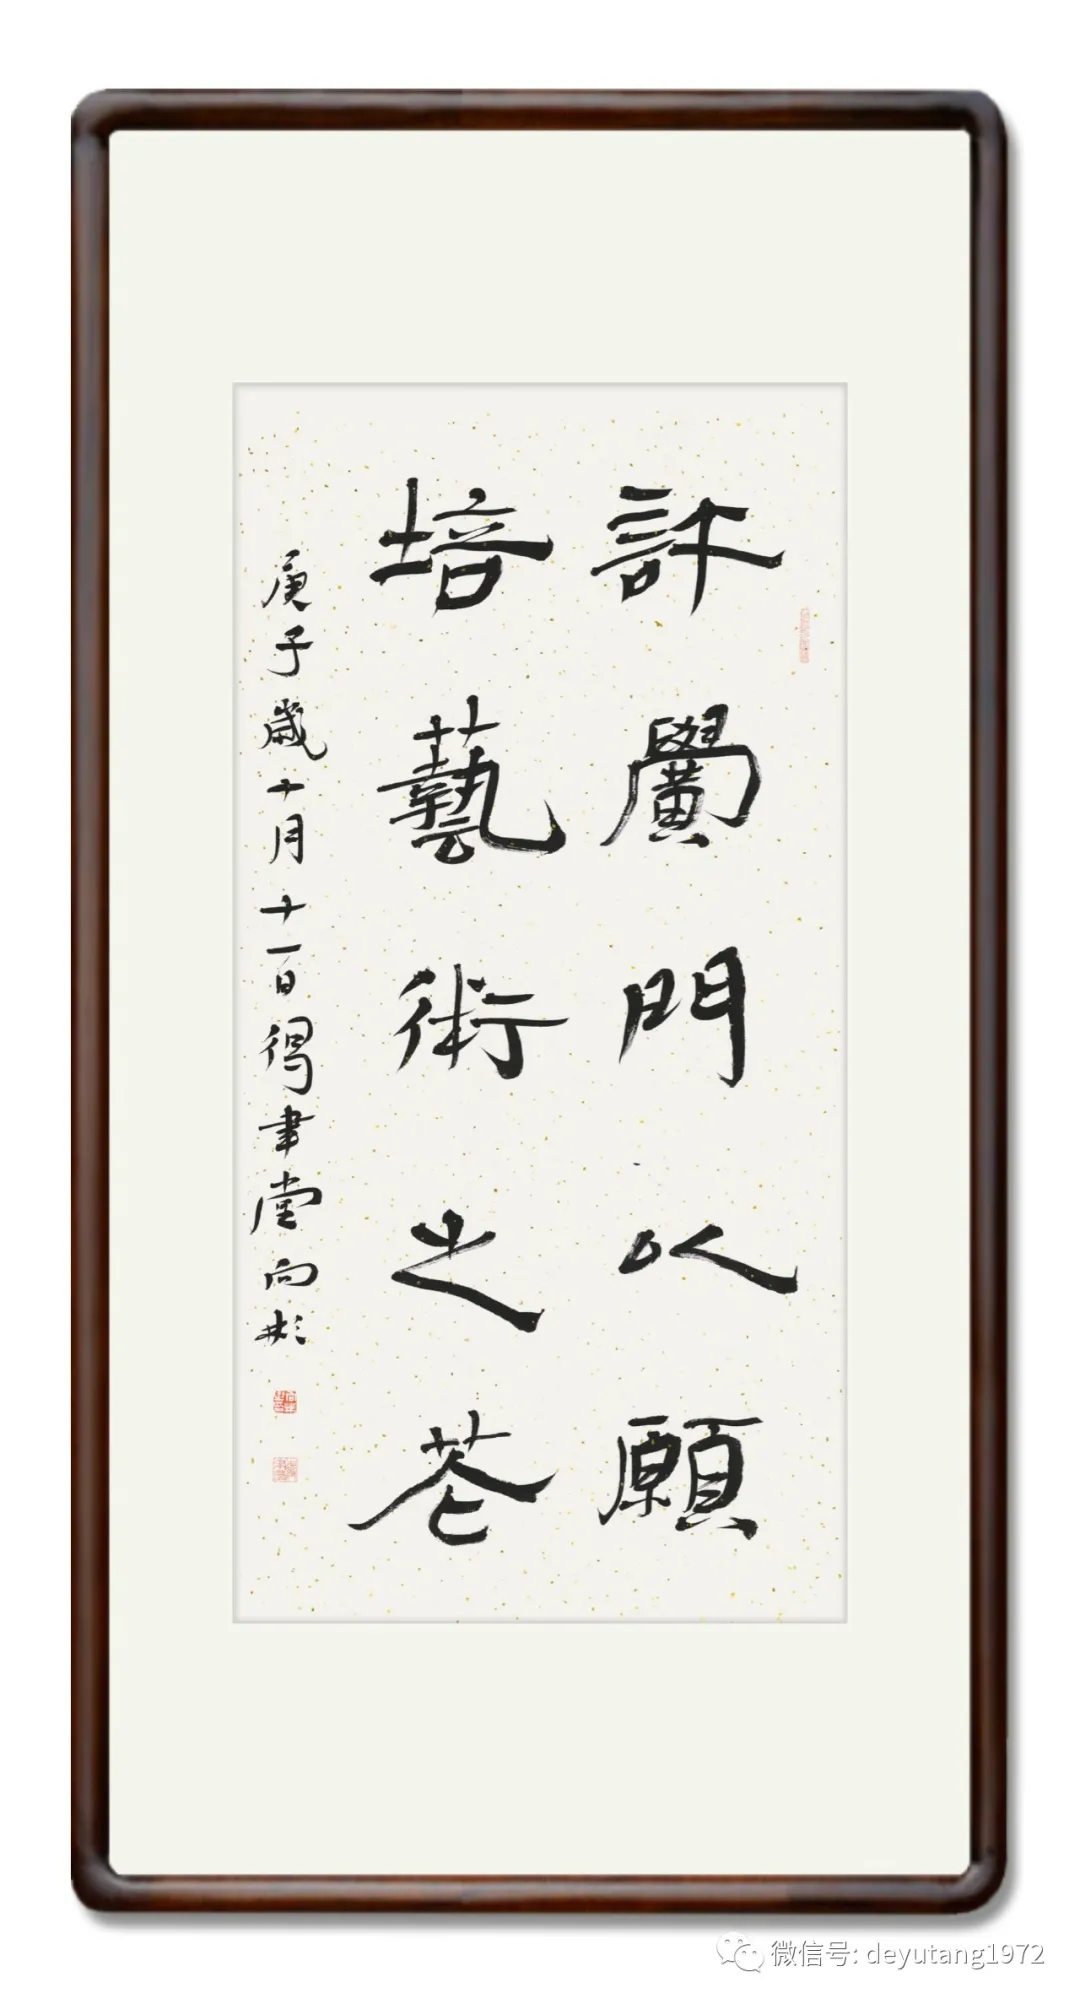 許黌門以願
培藝術之花
庚子歲十月十一日得聿堂向彬
微信号: deyutang1972